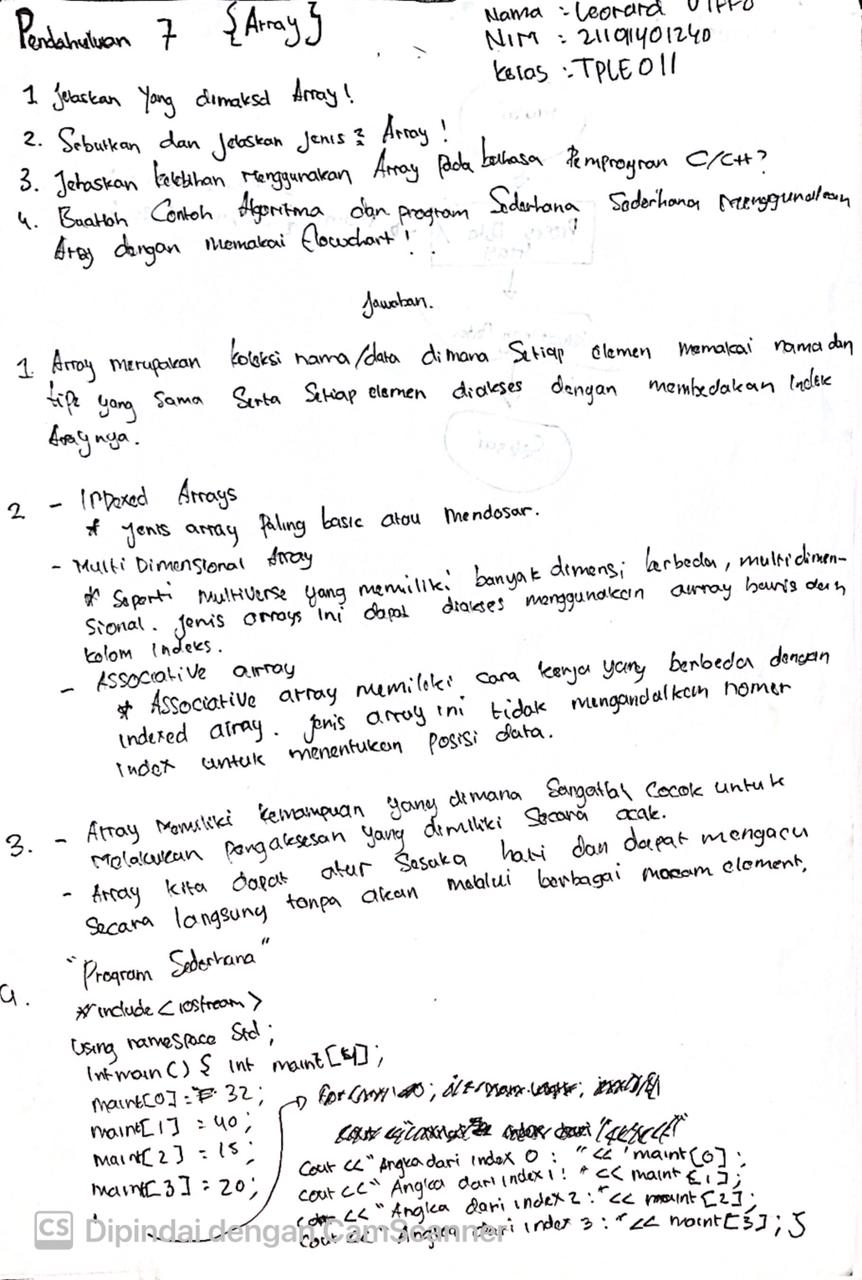 Pendahuluan 7 {Array}
Nama : Leorard
NIM : 21101401240
kelas : TPLE011
1 Jelaskan Yang dimaksd Array!
2. Sebutkan dan Jelaskan Jenis2 Array!
3. Jelaskan kelebihan Menggunakan Array pada bahasa Pemprogran C/C++?
4. Buatlah Contoh Algoritma dan program Sederhana Sederhana Menggunakan
Array dengan memakai flowchart!
Jawaban.
1. Array merupakan koleksi nama/data dimana Setiap elemen memakai nama dan
tipe yang Sama Serta Setiap elemen diakses dengan membedakan Indek
Araynya.
2 - Indexed Arrays
* Jenis array Paling basic atau mendasar.
- Multi Dimensional Array
* Seperti Multiverse yang memiliki banyak dimensi berbeda, multidimen-
sional. Jenis arrays ini dapat diakses menggunakan array baris dan
kolom Indeks.
- Associative array
* Associative array memiliki cara kerja yang berbeda dengan
indexed array. Jenis array ini tidak mengandalkan nomer
index untuk menentukan posisi data.
3. - Array Memiliki kemampuan yang dimana Sangatlah Cocok untuk
Melakukan pengaksesan yang dimiliki Secara acak.
- Array kita dapat atur Sesuka hati dan dapat mengacu
Secara langsung tanpa akan melalui berbagai macam element.
4. "Program Sederhana"
#include <iostream>
Using namespace Std;
Int main() { int maint[4];
maint[0] = 32;
maint[1] = 40;
maint[2] = 15;
maint[3] = 20;
Cout <<"Angka dari index 0 : " << maint[0];
cout <<"Angka dari index 1 : " << maint[1];
cout <<"Angka dari index 2 : " << maint[2];
Cout << "Angka dari index 3 : " << maint[3]; }
CS Dipindai dengan CamScanner